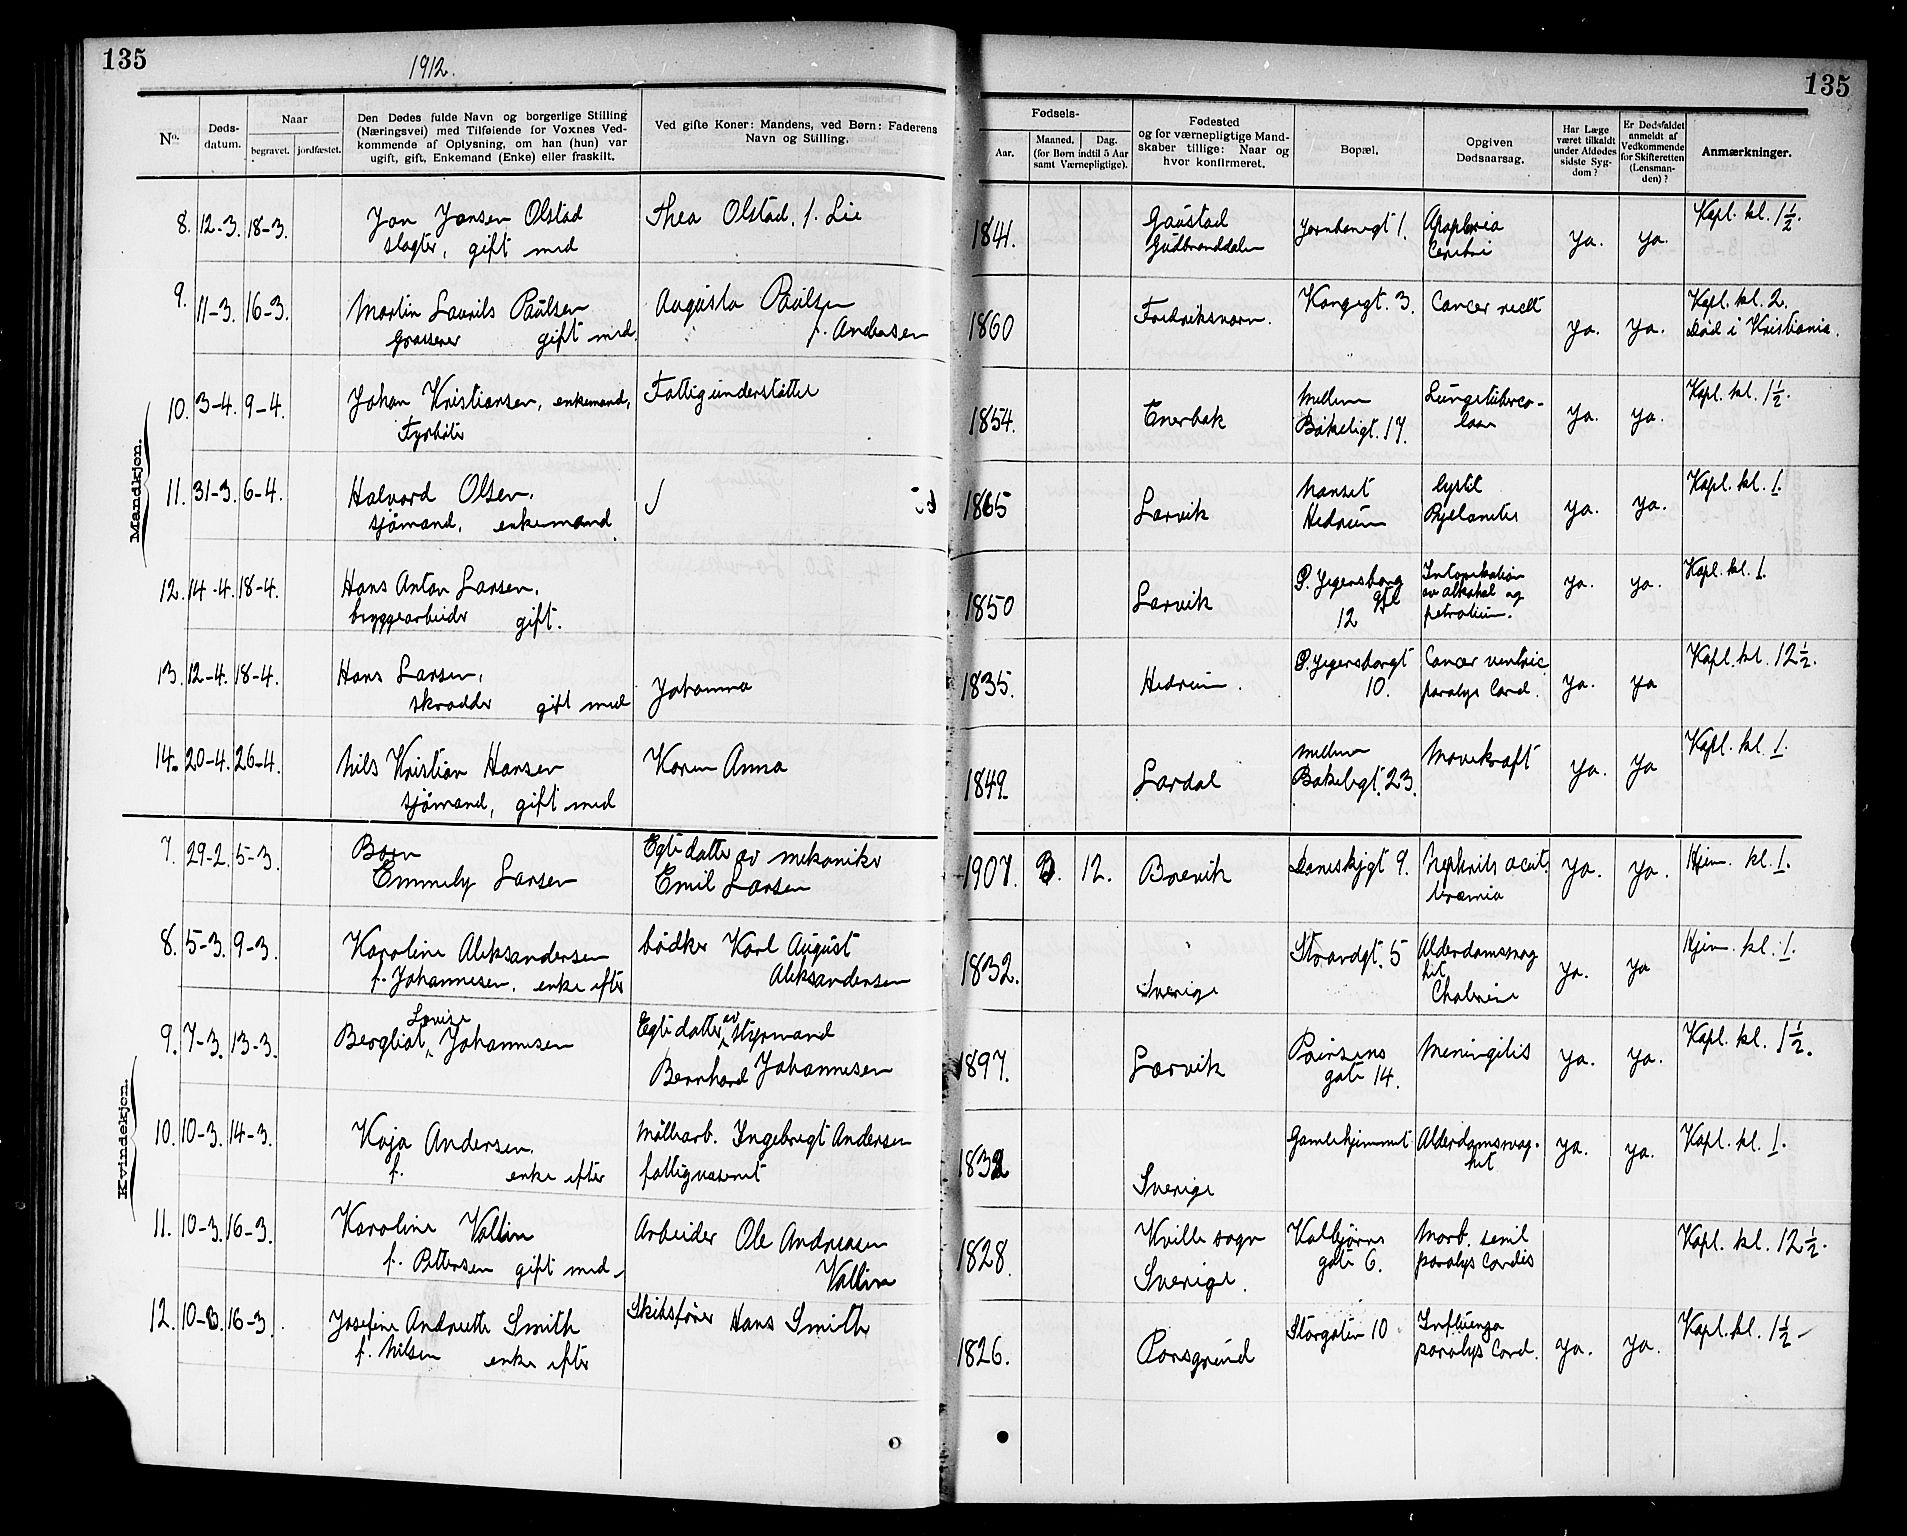 135
1912.
135
No.
Døds-
datum.
Naar
begravet.
jordfæstet.
Den Dødes fulde Navn og borgerlige Stilling
(Næringsvei) med Tilføiende for Voxnes Ved-
kommende af Oplysning, om han (hun) var
ugift, gift, Enkemand (Enke) eller fraskilt.
Ved gifte Koner: Mandens, ved Børn: Faderens
Navn og Stilling.
Fødsels-
Aar.
Maaned.
Dag.
(for Børn indtil 5 Aar
samt Værnepligtige).
Fødested
og for værnepligtige Mand-
skaber tillige: Naar og
hvor konfirmeret.
Bopæl.
Opgiven
Dødsaarsag.
Har Læge
været tilkaldt
under Afdødes
sidste Syg-
dom?
Er Dødsfaldet
anmeldt af
Vedkommende
for Skifteretten
(Lensman-
den)?
Anmærkninger.
Mandkjøn.
8. 12-3. 18-3. Jon Jonsen Olstad Thea Olstad, f. Lie 1841. Gaustad Jernbanegt 1. Apoplexia ya. ya. Kapl. kl. 1½.
slagter, gift med Gudbranddalen Cerebri
9. 11-3. 16-3. Martin Laurits Paulsen Augusta Paulsen 1860 Fredriksværn. Kongegt. 3. Cancer recti ya. ya. Kapl. kl. 2.
grosserer gift med f. Andersen Død i Kristiania.
10. 3-4. 9-4. Johan Kristiansen, enkemand, Fattigunderstøttet 1854. Enebak Mellem Lungetuberco- ya. ya. Kapl. kl. 1½.
Fyrbøter Bøkeligt. 17. lose
11. 31-3. 6-4. Halvord Olsen, 1865 Larvik Nanset ya. ya. Kapl. kl. 1.
sjømand, enkemand Hedrum
12. 14-4. 18-4. Hans Anton Larsen, 1850 Larvik P. Jegersborg Intoxikation ya. ya. Kapl. kl. 1.
bryggearbeider gift. 12 av alkohol og
petroleum.
13. 12-4. 18-4. Hans Larsen, Johanna 1835. Hedrum. P. Jegersborgt Cancer ventric ya. ya Kapl. kl. 12½.
skrædder gift med 10. paralys Cord.
14. 20-4. 26-4. Nils Kristian Hansen Karen Anna 1849. Lardal Mellem Marekraft ya. ya Kapl. kl. 1.
sjømand, gift med Bøkeligt. 23.
Kvindekjøn.
7. 29-2. 5-3. Barn Egte datter av mekaniker 1907. 12. Brevik Daneskjgt 9. Nephrit acut. ya. ya. Hjem. kl. 1.
Emmely Larsen Emil Larsen Uræmia
8. 5-3. 9-3. Karoline Aleksandersen bødker Karl August 1832. Sverige Strandgt. 5 Alderdomssvag ya. ya Hjem. kl. 1.
f. Johannesen, enke efter Aleksandersen het
Cholerine
9. 7-3. 13-3. Bergliot Lovise Johannesen Egte datter av styrmand 1897. Larvik Prinsens Meningitis ya. ya. Kapl. kl. 1½.
Bernhard Johannesen gate 14.
10. 10-3. 14-3. Kaja Andersen, Møllearb. Ingebregt Andersen 1832 Sverige Gamlehjemmet Alderdomssvag- ya. ya. Kapl. kl. 1.
f. enke efter fattigvæsenet het
11. 10-3. 16-3. Karoline Vallin Arbeider Ole Andreasen 1828. Kville sogn Kolbjørns Morb. senil Kapl. kl. 12½.
f. Pettersen gift med Vallin Sverige. gate 6. paralys Cordis
12. 10-3. 16-3. Josefine Andrette Smith Skibsfører Hans Smith 1826. Porsgrund Storgaten 10 Influenza ya. ya. Kapl. kl. 1½
f. Nilsen enke efter paralys Cord.